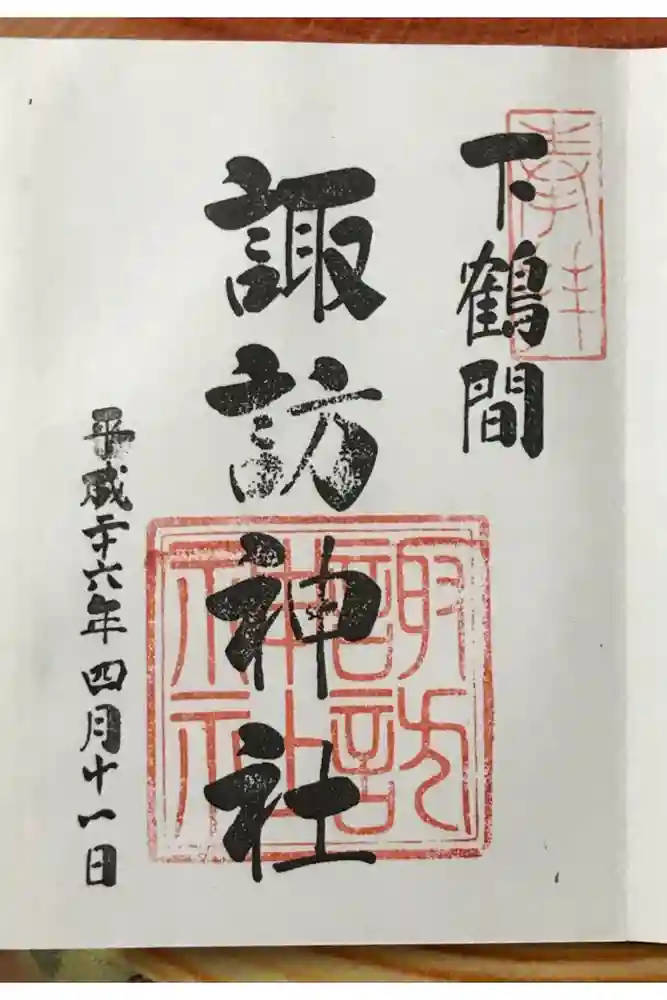 奉拝
下鶴間
諏訪神社
諏訪
神社
平成二十六年四月十八日